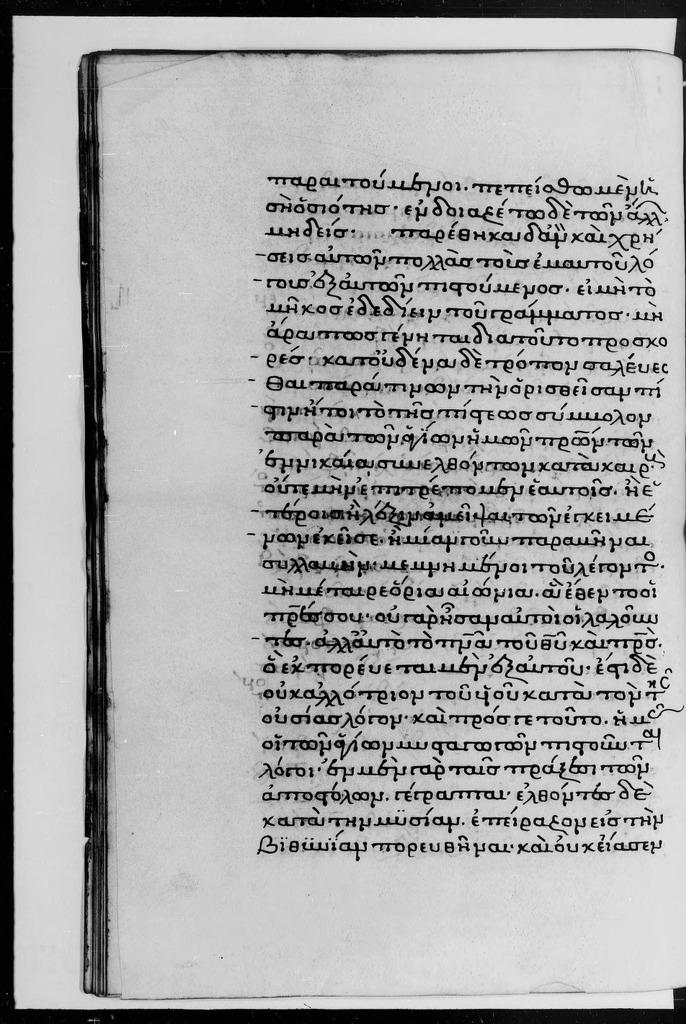 παραιτούμενοι. πεπείσθω μὲν ἡ
σὴ ὁσιότης· ἐνδοιαζέτω δὲ τῶν ἄλλ
μηδείς· παρέθηκα δ' ἂν καὶ χρή
σεις αὐτῶν πολλὰς τοῖς ἐμαυτοῦ λό
γοις ἐξ αὐτῶν πιστούμενος. εἰ μὴ τὸ
μῆκος ἐδεδίειν τοῦ γράμματος· μὴ
ἄρα πως γένηται διατοῦτο προσκο
ρές· κατ' οὐδένα δὲ τρόπον σαλεύεσ
θαι παρά τινων τὴν ὁρισθεῖσαν πί
στιν ἤτοι τὸ τῆς πίστεως σύμβολον
παρὰ τῶν ἁγίων ἡμῶν πρων τῶν
ἐν νικαία συνελθόντων κατὰ καιρ
οὔτε μὴν ἐπιτρέπομεν ἑαυτοῖς. ἢ ἑ
τέροις ἢ λέξιν ἀμεῖψαι τῶν ἐγκειμέ
νων ἐκεῖσε. ἢ μίαν γοῦν παραβῆναι
συλλαβήν· μεμνημένοι τοῦ λέγοντο
μὴ μέταιρε ὅρια αἰώνια. ἃ ἔθεντο οἱ
πρες σου· οὐ γὰρ ἦσαν αὐτοὶ οἱ λαλοῦν
τες. ἀλλ' αὐτὸ τὸ πνα τοῦ θυ καὶ πρς.
ὃ ἐκπορεύεται μὲν ἐξ αὐτοῦ· ἔστι δὲ
οὐκ ἀλλότριον τοῦ υἱοῦ κατὰ τὸν τῆς
οὐσίας λόγον· καὶ πρός γε τοῦτο. ἡμ
οἱ τῶν ἁγίων μυσταγωγῶν πιστοῦνται
λόγοι· ἐν μὲν γὰρ ταῖς πράξεσι τῶν
ἀποστόλων. γέγραπται· ἐλθόντες δὲ
κατὰ τὴν μϋσίαν. ἐπείραζον εἰς τὴν
βϊθϋνίαν πορευθῆναι· καὶ οὐκ εἴασεν